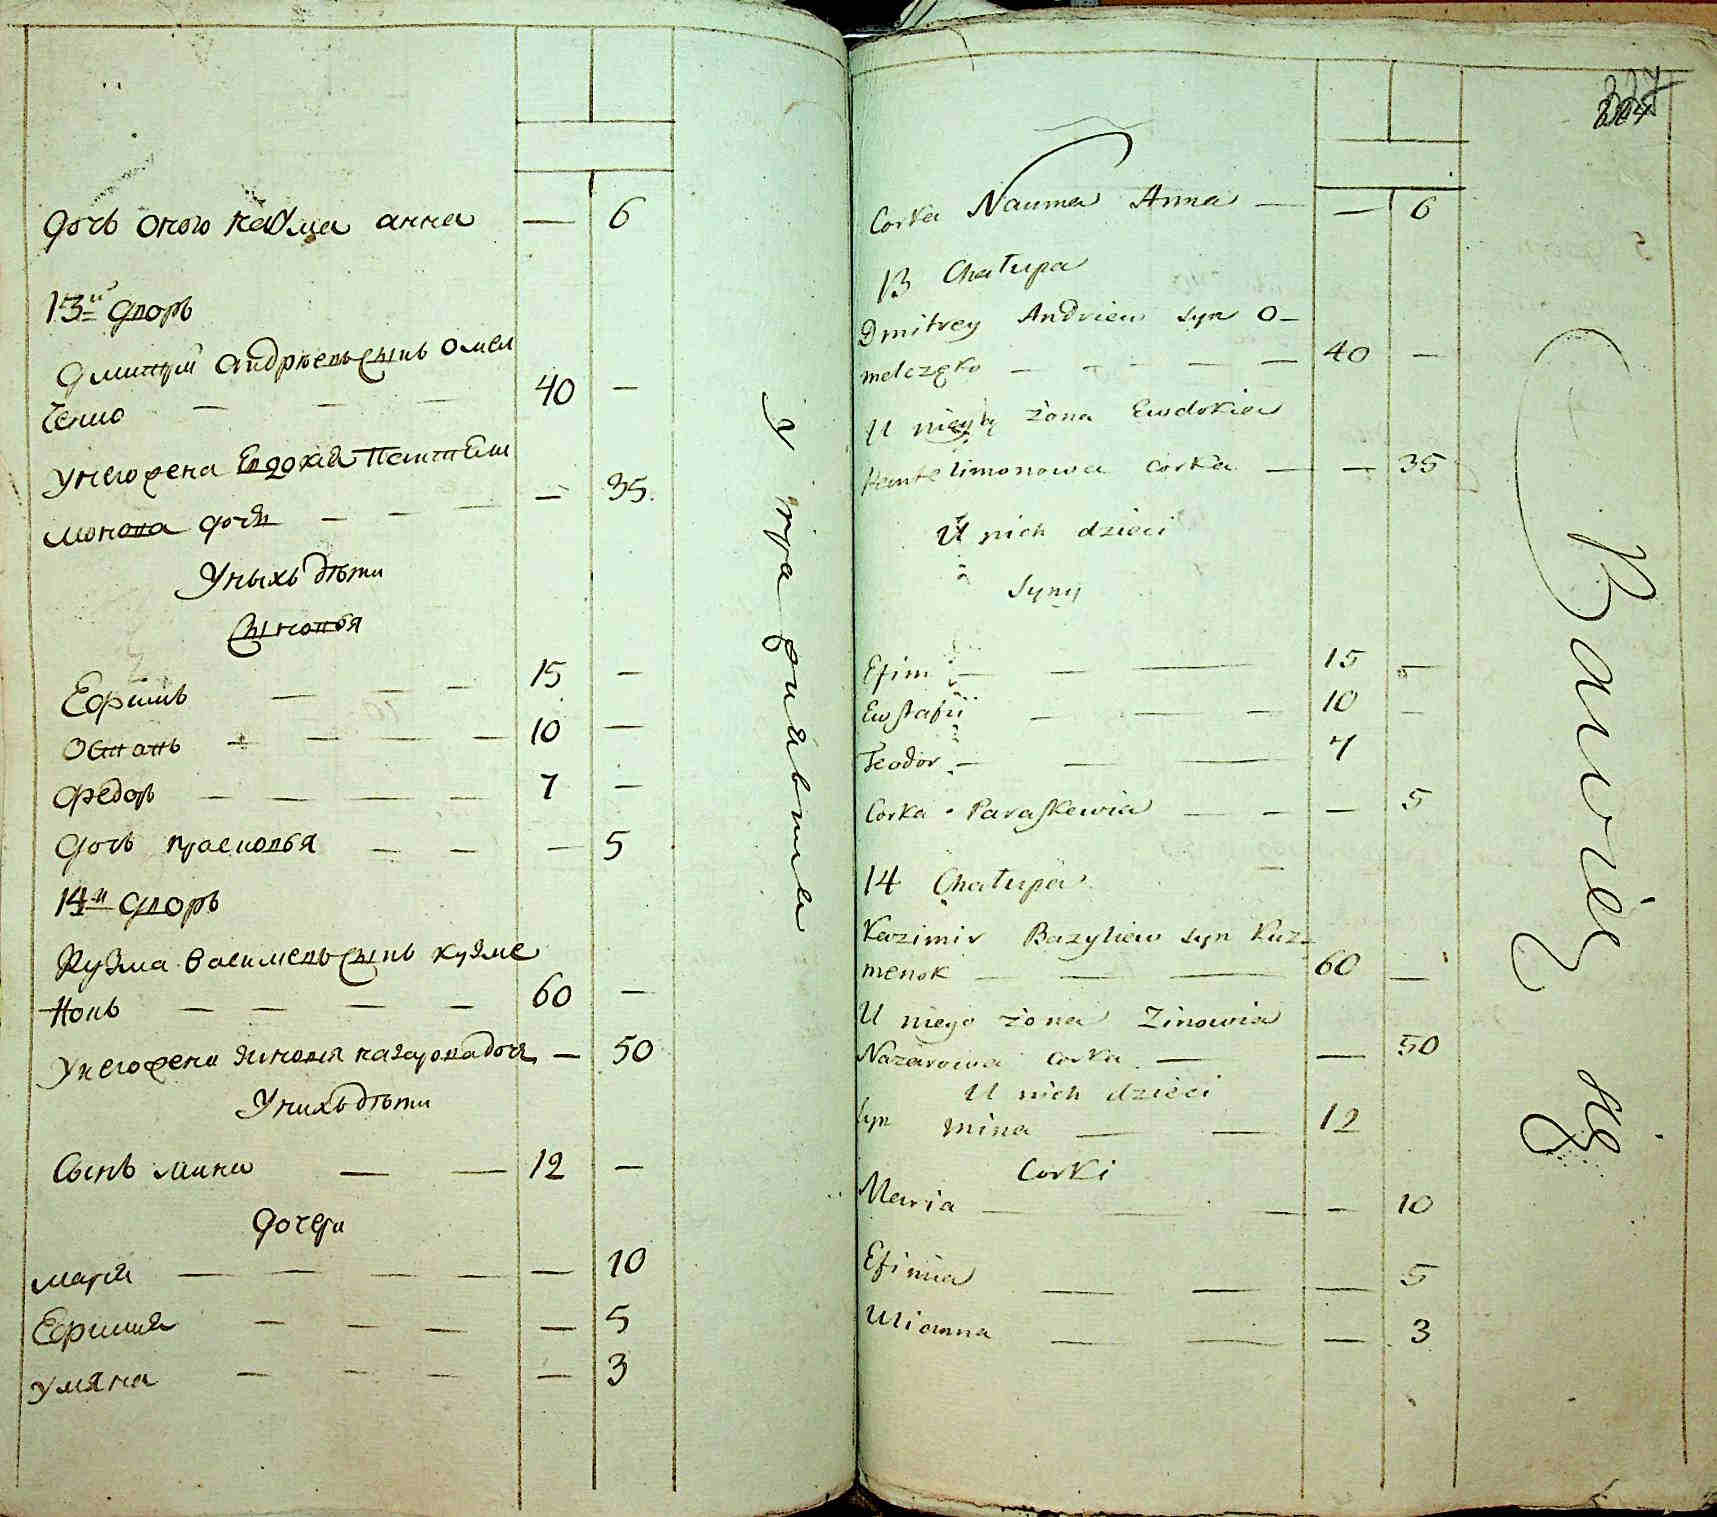 дочь оного наума анна — 6
13й дворъ
дмитрій андрѣевъ сынъ омел
ченко — — — 40 —
у него жена Евдокія пантели
монова дочь — — — — 35
У ныхъ дѣти
Сыновья
Ефимъ — — — 15 —
Остапъ — — — — 10 —
Федоръ — — — — 7 —
дочь прасковья — — — 5
14й дворъ
Кузма василиевъ сынъ кузме
нокъ — — — — 60 —
у него жена зиновія назарова дочь — 50
У нихъ дѣти
Сынъ мина — — 12 —
дочери
марія — — — — — 10
Ефимія — — — — — 5
уляна — — — — — 3
327
Corka Nauma Anna — — 6
13 Chałupa
Dmitrey Andriew syn O-
melczęko — — — — — 40 —
U niego żona Ewdokia
Pantelimonowa corka — — 35
U nich dzieci
Syny
Efim — — — 15 —
Ewstafii — — — 10 —
Teodor — — — 7
Corka Paraskewia — — — 5
14 Chałupa
Kazimir Bazyliew syn Kuz-
menok — — — 60 —
U niego żona Zinowia
Nazarowa corka — — 50
U nich dzieci
Syn Mina — — 12
Corki
Maria — — — — 10
Efimia — — — 5
Ulianna — — — 3